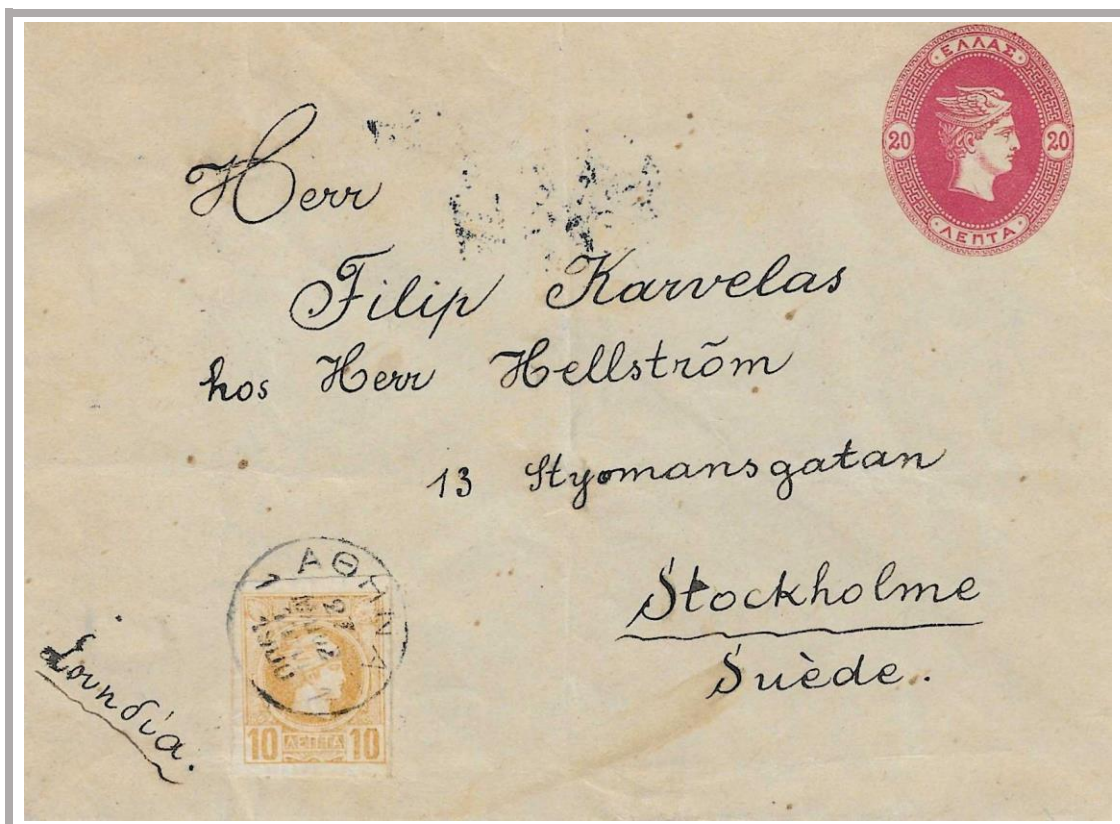 ΕΛΛΑΣ
20 20
ΛΕΠΤΑ
Herr
Filip Karvelas
hos Herr Hellström
13 Styomansgatan
Stockholme
Suède.
ΑΘΗΝΑ
1
10 ΛΕΠΤΑ 10
Σουηδία.